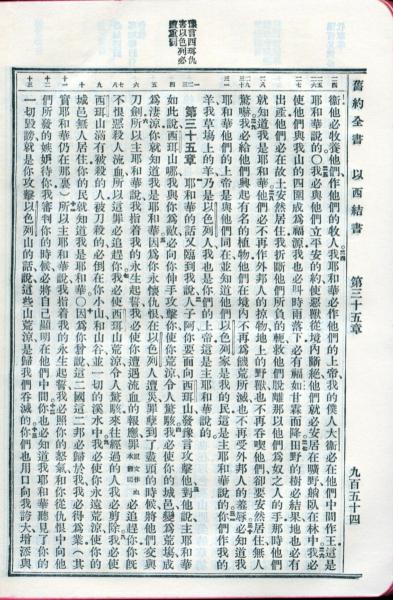 舊約全書　以西結書　第三十五章　九百五十四
豫言西珥仇
害以色列必
遭重罰
衞他必牧養他們作他們的牧人我耶和華必作他們的上帝我的僕人大衞必在他們中間作王這是
耶和華說的〇我必與他們立平安的約使惡獸從境內斷絕他們就必安居在曠野躺臥在林中我必
使他們與我山的四圍成爲福源我也必叫時雨落下必有福如甘霖而降田野的樹必結果地也必有
出產他們必在故土安然居住我折斷他們所負的軛救他們脫離那以他們爲奴之人的手那時他們
就知道我是耶和華他們必不再作外邦人的掠物地上的野獸也不再吞喫他們卻要安然居住無人
驚嚇我必給他們興起有名的植物他們在境內不再爲饑荒所滅也不再受外邦人的羞辱必知道我
耶和華他們的上帝是與他們同在並知道他們以色列家是我的民這是主耶和華說的你們作我的
羊我草場上的羊乃是以色列人我也是你們的上帝這是主耶和華說的
第三十五章　耶和華的話又臨到我說人子阿你要面向西珥山發豫言攻擊他對他說主耶和華
如此說西珥山哪我與你爲敵必向你伸手攻擊你使你荒涼令人驚駭我必使你的城邑變爲荒場成
爲淒涼你就知道我是耶和華因爲你永懷仇恨在以色列人遭災罪孽到了盡頭的時候將他們交與
刀劍所以主耶和華說我指着我的永生起誓我必使你遭遇流血的報應罪必追趕你你旣
不恨惡殺人流血所以這罪必追趕你我必使西珥山荒涼令人驚駭來往經過的人我必剪除我必使
西珥山滿有被殺的人被刀殺的必倒在你小山和山谷並一切的溪水中我必使你永遠荒涼使你的
城邑無人居住你的民就知道我是耶和華〇因爲你曾說這二國這二邦必歸於我我必得爲業（其
實耶和華仍在那裏）所以主耶和華說我指着我的永生起誓我必照你的怒氣和你從仇恨中向他
們所發的嫉妒待你我審判你的時候必將自己顯明在他們中間你也必知道我耶和華聽見了你的
一切毀謗就是你攻擊以色列山的話說這些山荒涼是歸我們吞滅的你們也用口向我誇大增添與